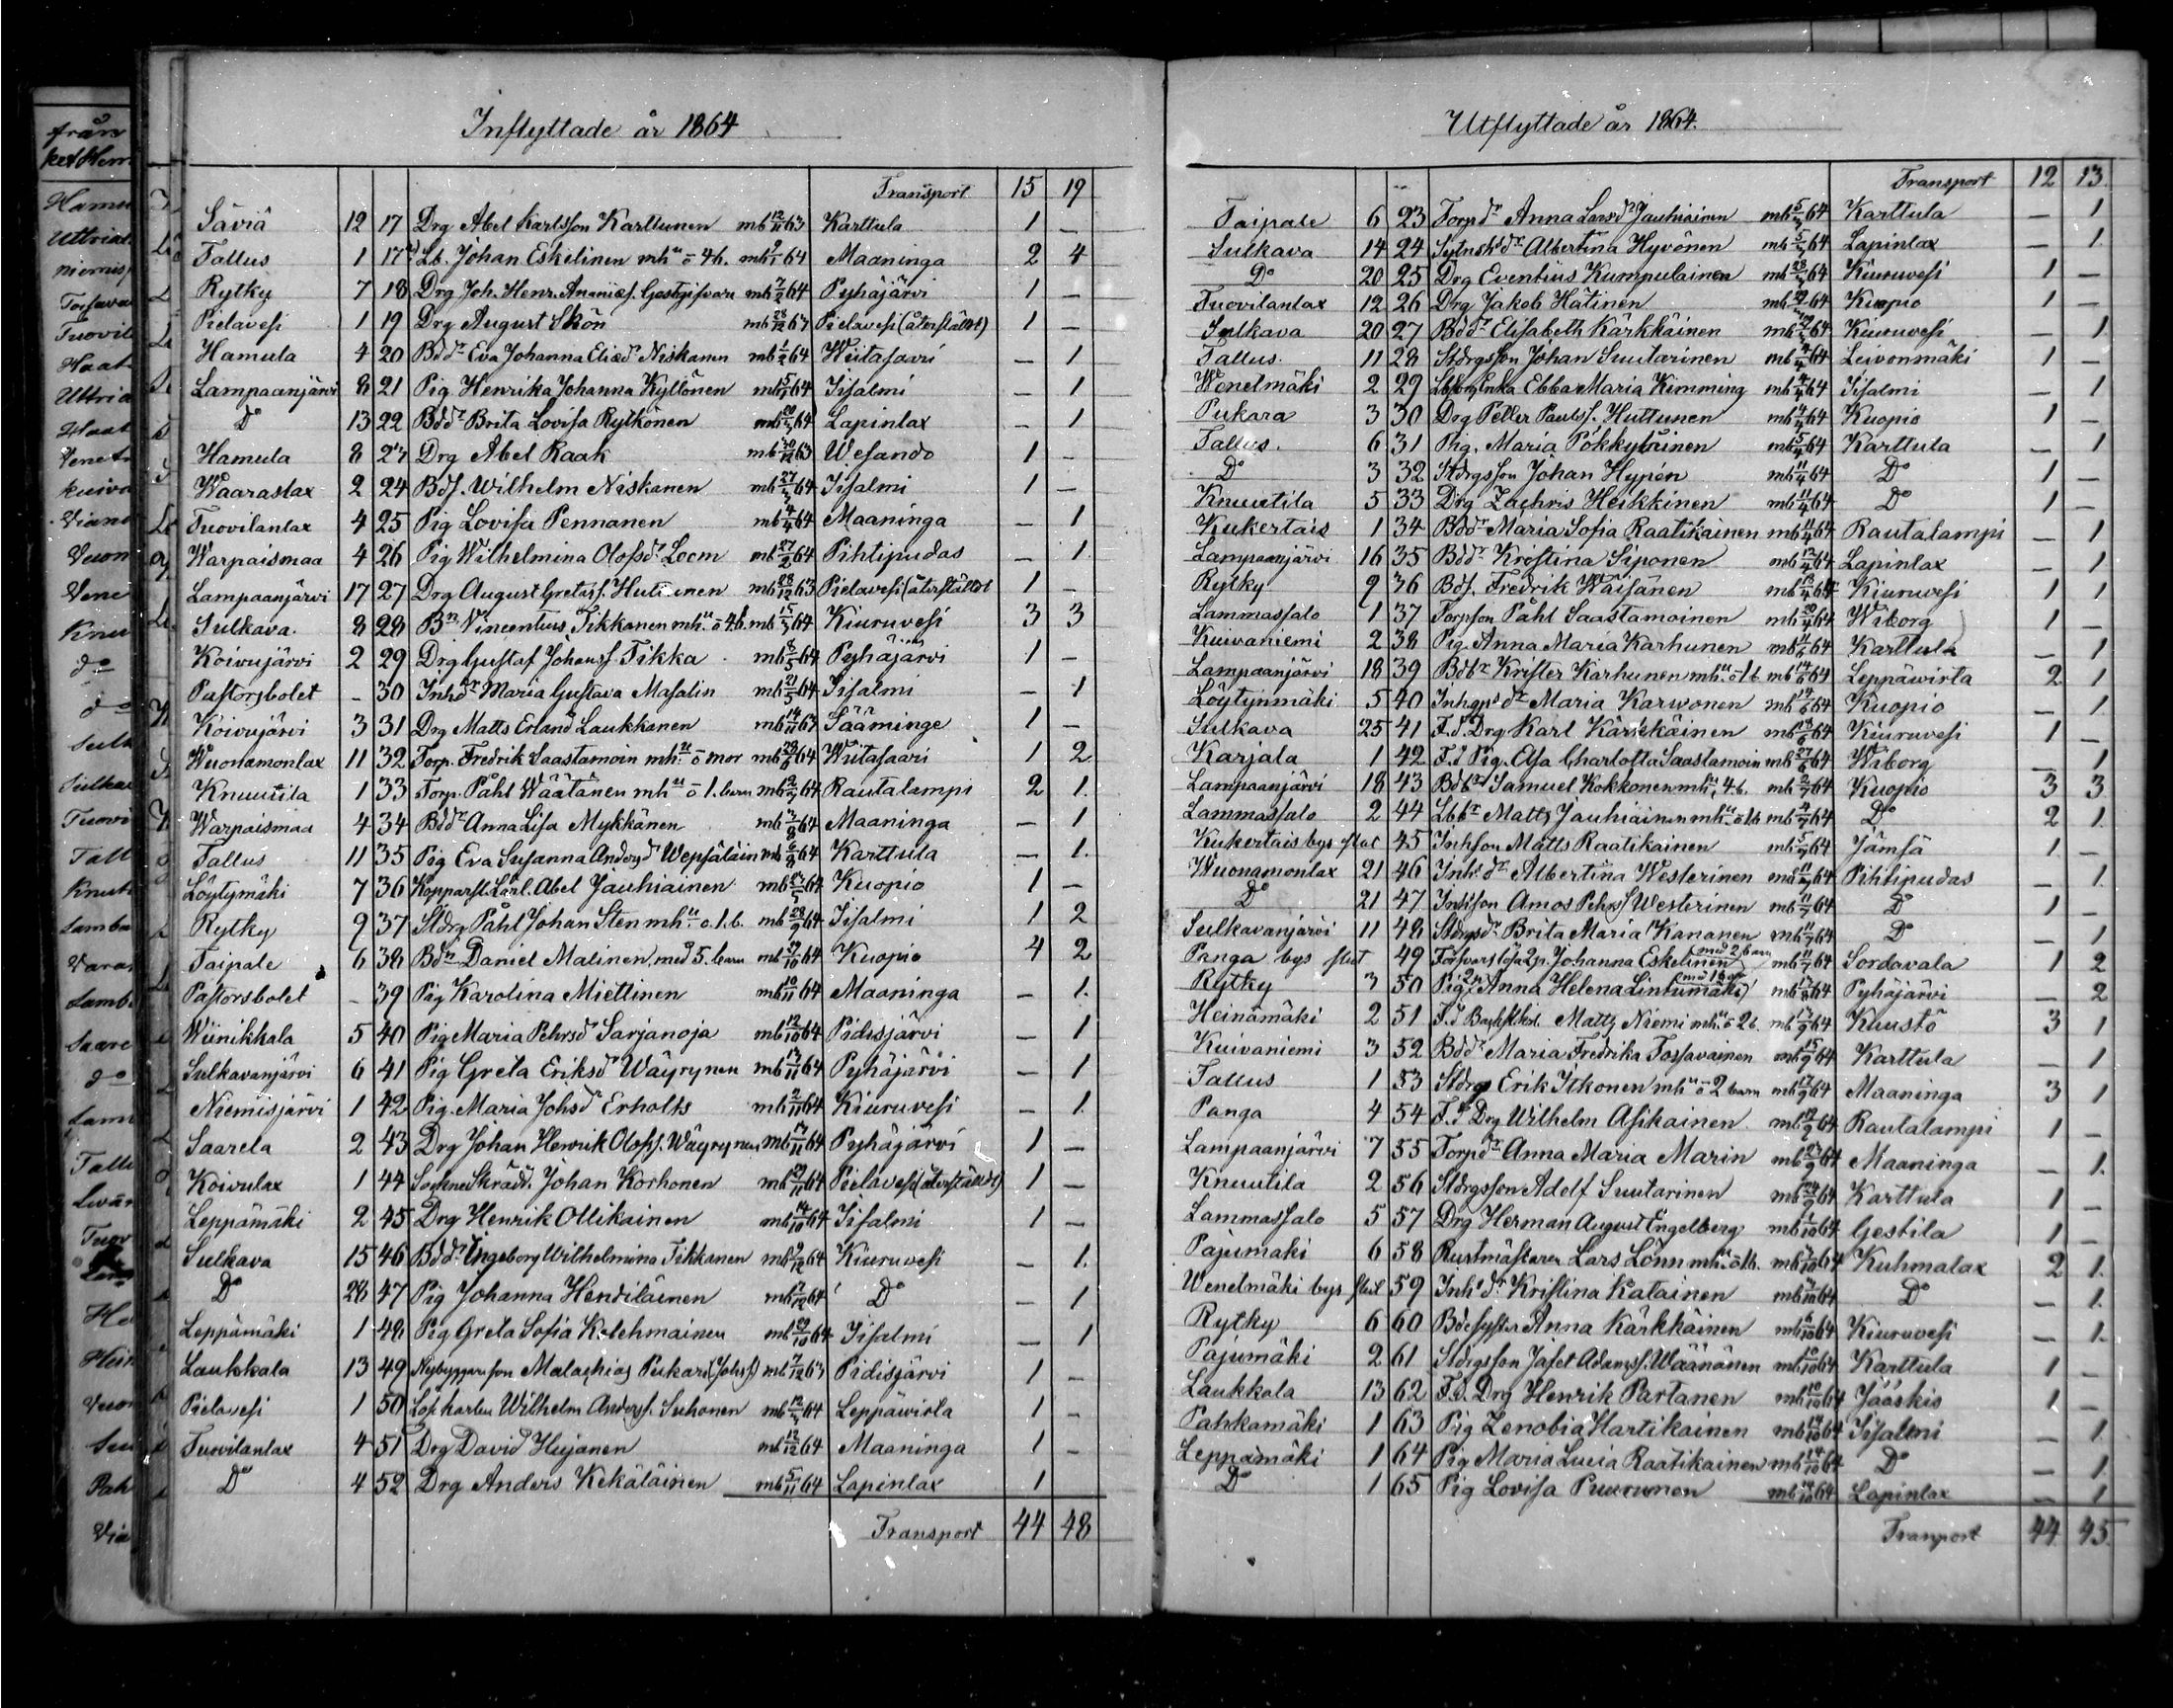 Inflyttade år 1864
Transport 15 19
Säviä 12 17 Drg Abel Karlsson Karttunen mb 12/11 63 Karttula 1 —
Tallus 1 17 2) Lb. Johan Eskelinen mhu o 4b. mb 9/1 64 Maaninga 2 4
Rytky 7 18 Drg Joh. Henr. Ananiæs. Gästgifvare mb 7/2 64 Pyhäjärvi 1 —
Pielavesi 1 19 Drg August Skön mb 28/12 63 Pielavesi (återställdt) 1 —
Hamula 4 20 Bddr Eva Johanna Eliæd Niskanen mb 1/2 64 Wiitasaari — 1
Lampaanjärvi 8 21 Pig Henrika Johanna Kyllönen mb 5/3 64 Iisalmi — 1
Do 13 22 Bddr Brita Lovisa Rytkönen mb 64 Lapinlax — 1
Hamula 8 23 Drg Abel Raak mb 30/12 63 Wesando 1 —
Waaraslax 2 24 Bds. Wilhelm Niskanen mb 27/3 64 Iisalmi 1 —
Tuovilanlax 4 25 Pig Lovisa Pennanen mb 4/4 64 Maaninga — 1
Warpaismaa 4 26 Pig Wilhelmina Olofsdr Loom mb 27/2 64 Pihtipudas — 1
Lampaanjärvi 17 27 Drg August Gretas. Huttunen mb 28/12 63 Pielavesi (återställdt 1 —
Sulkava. 8 28 Bn Vincentius Tikkanen mhu o 4b. mb 15/3 64 Kiuruvesi 3 3
Koivujärvi 2 29 Drg Gustaf Johanss. Tikka mb 8/5 64 Pyhäjärvi 1 —
Pastorsbolet — 30 Inhdr Maria Gustava Masalin mb 21/5 64 Iisalmi — 1
Koivujärvi 3 31 Drg Matts Erland Laukkanen mb 14/11 63 Sääminge 1 —
Wuonamonlax 11 32 Torp. Fredrik Saastamoin mhu o mor mb 28/6 64 Witasaari 1 2
Knuutila 1 33 Torp. Påhl Wäätänen mhu o 1. barn mb 12/7 64 Rautalampi 2 1.
Warpaismaa 4 34 Bddr Anna Lisa Mykkänen mb 7/8 64 Maaninga — 1
Tallus 11 35 Pig Eva Susanna Andersd Wepsäläin mb 6/9 64 Karttula — 1.
Löytymäki 7 36 Kopparsl. Lärl. Abel Jauhiainen mb 64 Kuopio 1 —
Rytky 9 37 Stdrg Påhl Johan Sten mhu o 1. b. mb 28/9 64 Iisalmi 1 2
Taipale 6 38 Bdn Daniel Malinen med 5. barn mb 19/10 64 Kuopio 4 2
Pastorsbolet — 39 Pig Karolina Miettinen mb 10/11 64 Maaninga — 1.
Wiinikkala 5 40 Pig Maria Pehrsd Sarjanoja mb 12/10 64 Pidisjärvi — 1
Sulkavanjärvi 6 41 Pig Greta Eriksdr Wäyrynen mb 13/11 64 Pyhäjärvi — 1
Niemisjärvi 1 42 Pig. Maria Johsdr Erholts mb 2/11 64 Kiuruvesi — 1.
Saarela 2 43 Drg Johan Henrik Olofss. Wäyrynen mb 13/11 64 Pyhäjärvi 1 —
Koivulax 1 44 Sockne Skräd. Johan Korhonen mb 29/11 64 Pielavesi (återställdt) 1 —
Leppämäki 2 45 Drg Henrik Ollikainen mb 14/10 64 Iisalmi 1 —
Sulkava 15 46 Bddr Ingeborg Wilhelmina Tikkanen mb 9/12 64 Kiuruvesi — 1.
Do 28 47 Pig Johanna Hendiläinen mb 64 Do — 1
Leppämäki 1 48 Pig Greta Sofia Kolehmainen mb 29/10 64 Iisalmi — 1
Laukkala 13 49 Nybyggareson Malachias Pukari (Johs.) mb 7/12 63 Pidisjärvi 1 —
Pielavesi 1 50 Löskarlen Wilhelm Anderss. Suhonen mb 64 Leppävirta 1 —
Tuovilanlax 4 51 Drg David Hujanen mb 12/12 64 Maaninga 1 —
Do 4 52 Drg Anders Kekäläinen mb 5/11 64 Lapinlax 1
Transport 44 48
Utflyttade år 1864.
Transport 12 13.
Taipale 6 23 Torpdr Anna Larsdr Jauhiainen mb 5/4 64 Karttula — 1
Sulkava 14 24 Sytnskdr Albertina Hyvönen mb 5/4 64 Lapinlax — 1.
Do 20 25 Drg Eventius Kumpulainen mb 28/3 64 Kiuruvesi 1 —
Tuovilanlax 12 26 Drg Jakob Hätinen mb 64 Kuopio 1 —
Sulkava 20 27 Bddr Elisabeth Kärkkäinen mb 64 Kiuruvesi — 1
Tallus. 11 28 Stdrgsson Johan Suutarinen mb 4/4 64 Leivonmäki 1 —
Wenetmäki 2 29 Enka Ebba Maria Kimming mb 4/4 64 Iisalmi — 1
Pukara 3 30 Drg Petter Paulss. Huttunen mb 4/4 64 Kuopio 1 —
Tallus. 6 31 Pig. Maria Pökkyläinen mb 5/4 64 Karttula — 1
Do 3 32 Stdrgsson Johan Hypén mb 11/4 64 Do 1 —
Knuutila 5 33 Drg Zachris Heikkinen mb 11/4 64 Do 1 —
Kukertais 1 34 Bddr Maria Sofia Raatikainen mb 11/4 64 Rautalampi — 1
Lampaanjärvi 16 35 Bddr Kristina Siponen mb 12/4 64 Lapinlax — 1
Rytky 9 36 Bds. Fredrik Wäisänen mb 13/4 64 Kiuruvesi 1 1
Lammassalo 1 37 Torpson Påhl Saastamoinen mb 20/4 64 Wiborg 1 —
Kuivaniemi 2 38 Pig. Anna Maria Karhunen mb 11/6 64 Karttula — 1
Lampaanjärvi 18 39 Bdbr Krister Karhunen mhu o 1b mb 14/6 64 Leppäwirta 2 1
Löytynmäki 5 40 Inhgsdr Maria Karwonen mb 14/6 64 Kuopio — 1.
Sulkava 25 41 F. d. Drg Karl Kärkkäinen mb 64 Kiuruvesi 1 —
Karjala 1 42 F. d Pig. Asa Charlotta Saastamoin mb 27/6 64 Wiborg — 1
Lampaanjärvi 18 43 Bdbr Samuel Kokkonen mhu, 4 b. mb 2/7 64 Kuopio 3 3
Lammassalo 2 44 Lbbr Matts Jauhiainen mhu o 1b mb 4/7 64 Do 2 1.
Kukertais bys slut 45 Inhson Matts Raatikainen mb 5/7 64 Jämsä 1 —
Wuonamonlax 21 46 Inhsdr Albertina Westerinen mb 11/7 64 Pihtipudas — 1.
Do 21 47 Inhson Amos Pehrss Westerinen mb 11/7 64 Do 1 —
Sulkavanjärvi 11 48 Stdrgsdr Brita Maria Kananen mb 11/7 64 Do — 1
Panga bys slut 49 Försvarslösa Qp. Johanna Eskelinen med 2 barn mb 11/7 64 Sordavala 1 2
Rytky 3 50 Pig Qn Anna Helena Lintumäki med 1 barn mb 64 Pyhäjärvi — 2
Heinämäki 2 51 F. d Matts Niemi mhu o 2 b. mb 13/9 64 Kuustö 3 1
Kuivaniemi 3 52 Bddr Maria Fredrika Tossavainen mb 15/9 64 Karttula — 1
Tallus 1 53 Stdrg Erik Itkonen mhu o 2 barn mb 17/9 64 Maaninga 3 1
Panga 4 54 F. d Drg Wilhelm Asikainen mb 64 Rautalampi 1 —
Lampaanjärvi 7 55 Torpdr Anna Maria Marin mb 64 Maaninga — 1.
Knuutila 2 56 Stdrgsson Adolf Suutarinen mb 24/9 64 Karttula 1 —
Lammassalo 5 57 Drg Herman August Engelberg mb 1/10 64 Gestila 1 —
Pajumäki 6 58 Rustmästaren Lars Lönn mhu o 1b. mb 64 Kuhmalax 2 1.
Wenetmäki bys slut 59 Inhsdr Kristina Katainen mb 64 Do — 1.
Rytky 6 60 Bdesyster Anna Kärkkäinen mb 6/10 64 Kiuruvesi — 1.
Pajumäki 2 61 Stdrgsson Jafet Adamss. Wäänänen mb 10/10 64 Karttula 1 —
Laukkala 13 62 F. d. Drg Henrik Partanen mb 10/10 64 Jääskis 1 —
Pahkamäki 1 63 Pig Zenobia Hartikainen mb 64 Iisalmi — 1
Leppämäki 1 64 Pig Maria Lucia Raatikainen mb 14/10 64 Do — 1.
Do 1 65 Pig Lovisa Puurunen mb 64 Lapinlax — 1
Tranport 44 45.